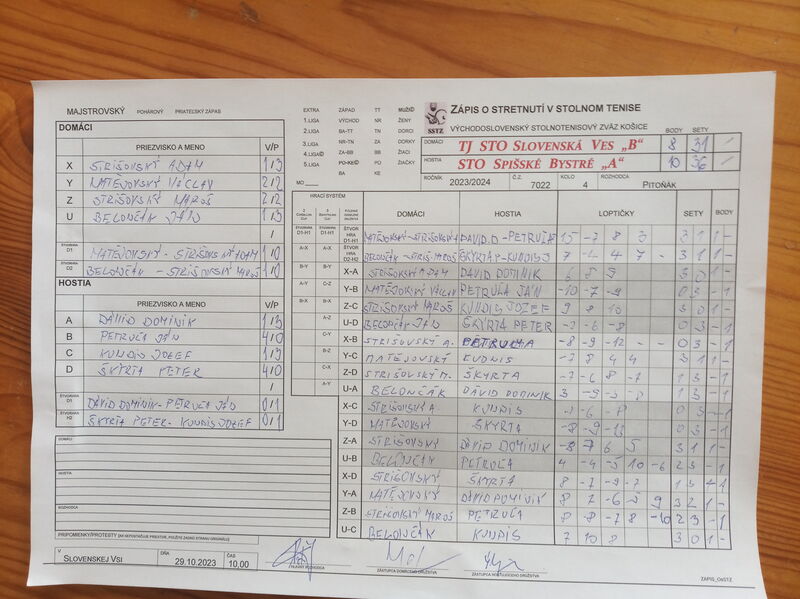 MAJSTROVSKÝ POHÁROVÝ PRIATEĽSKÝ ZÁPAS
DOMÁCI
PRIEZVISKO A MENO V/P
X STRIŠOVSKÝ ADAM 1/3
Y MATĚJOVSKÝ VÁCLAV 2/2
Z STRIŠOVSKÝ MAROŠ 2/2
U BELONČÁK JÁN 1/3
ŠTVORHRA D1 MATĚJOVSKÝ - STRIŠOVSKÝ ADAM 1/0
ŠTVORHRA D2 BELONČÁK - STRIŠOVSKÝ MAROŠ 1/0
HOSTIA
PRIEZVISKO A MENO V/P
A DÁVID DOMINIK 1/3
B PETRUĽA JÁN 4/0
C KUNDIS JOZEF 1/3
D ŠKYRTA PETER 4/0
ŠTVORHRA DÁVID DOMINIK - PETRUĽA JÁN 0/1
ŠTVORHRA H2 ŠKYRTA PETER - KUNDIS JOZEF 0/1
DOMÁCI
HOSTIA
ROZHODCA
PRIPOMIENKY/PROTESTY (AK NEPOSTAČUJE PRIESTOR, POUŽITE ZADNÚ STRANU ORIGINÁLU)
V SLOVENSKEJ VSI DŇA 29.10.2023 ČAS 10,00
EXTRA ZÁPAD TT MUŽI
1.LIGA VÝCHOD NR ŽENY
2.LIGA BA-TT TN DORCI
3.LIGA NR-TN ZA DORKY
4.LIGA ZA-BB BB ŽIACI
5.LIGA PO-KE PO ŽIAČKY
MO BA KE
SSTZ
ZÁPIS O STRETNUTÍ V STOLNOM TENISE
VÝCHODOSLOVENSKÝ STOLNOTENISOVÝ ZVÄZ KOŠICE
BODY SETY
DOMÁCI TJ STO SLOVENSKÁ VES „B“ 8 31
HOSTIA STO SPIŠSKÉ BYSTRÉ „A“ 10 36
ROČNÍK 2023/2024 Č.Z. 7022 KOLO 4 ROZHODCA PITOŇÁK
HRACÍ SYSTÉM
DOMÁCI HOSTIA LOPTIČKY SETY BODY
ŠTVORHRA D1-H1 MATĚJOVSKÝ-STRIŠOVSKÝ A DÁVID D - PETRUĽA 15 -7 8 3 3 1 1 -
ŠTVORHRA D2-H2 BELONČÁK - STRIŠ. MAROŠ ŠKYRTA - KUNDIS J 7 -4 4 7 - 3 1 1 -
X-A STRIŠOVSKÝ ADAM DÁVID DOMINIK 6 8 9 3 0 1
Y-B MATĚJOVSKÝ VÁCLAV PETRUĽA JÁN -10 -7 -9 0 3 - 1
Z-C STRIŠOVSKÝ MAROŠ KUNDIS JOZEF 9 8 10 3 0 1
U-D BELONČÁK JÁN ŠKYRTA PETER -2 -6 -8 0 3 - 1
X-B STRIŠOVSKÝ A. PETRUĽA -8 -9 -12 - 0 3 - 1
Y-C MATĚJOVSKÝ KUNDIS -2 8 4 4 3 1 1 -
Z-D STRIŠOVSKÝ M. ŠKYRTA -2 -6 8 -7 1 3 - 1
U-A BELONČÁK DÁVID DOMINIK 1 3 - 1
X-C STRIŠOVSKÝ A KUNDIS -2 -6 -8 0 3 - 1
Y-D MATĚJOVSKÝ ŠKYRTA -8 -9 -13 0 3 - 1
Z-A STRIŠOVSKÝ DÁVID DOMINIK -8 7 6 5 3 1 1
U-B BELONČÁK PETRUĽA 4 -4 -5 10 -6 2 3 - 1
X-D STRIŠOVSKÝ ŠKYRTA 8 -7 -9 -7 1 3 - 1
Y-A MATĚJOVSKÝ DÁVID DOMINIK 8 7 -6 -5 9 3 2 1 -
Z-B STRIŠOVSKÝ MAROŠ PETRUĽA 8 -8 -7 8 -10 2 3 - 1
U-C BELONČÁK KUNDIS 7 10 8 3 0 1
ZÁSTUPCA DOMÁCEHO DRUŽSTVA
ZÁSTUPCA HOSŤUJÚCEHO DRUŽSTVA
ZÁPIS_OSSTZ